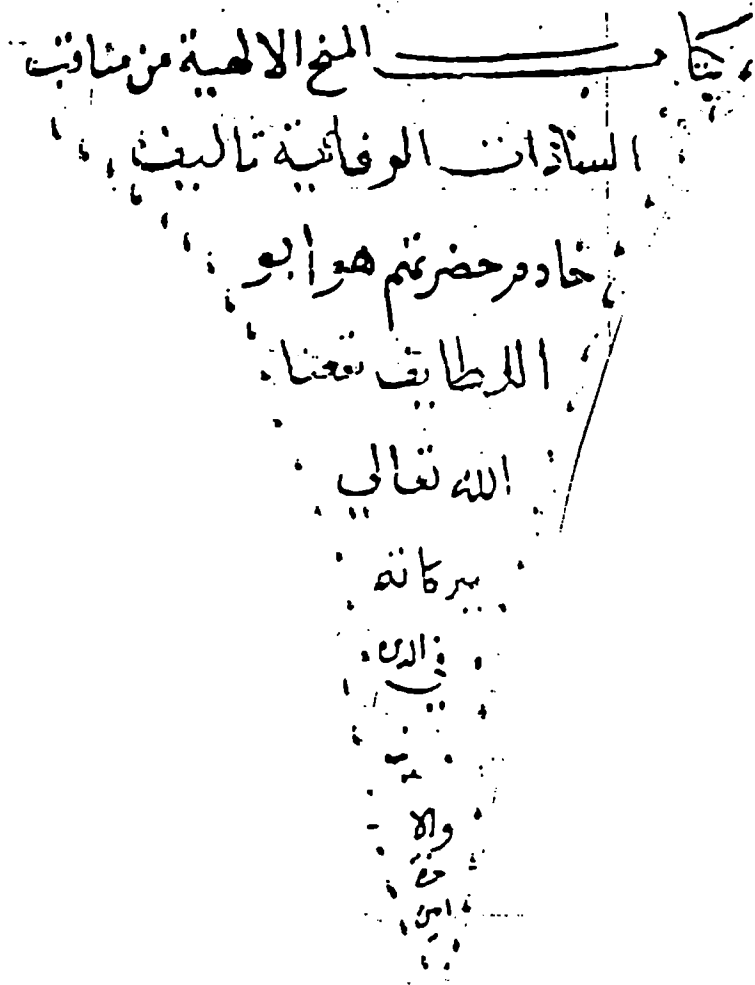 كتاب المنح الالهية من مناقب
السادات الوفائية تاليف
خادم حضرتهم هو ابو
اللطايف نفعنا
الله تعالي
ببركاته
في الدين
والا
خرة
امين